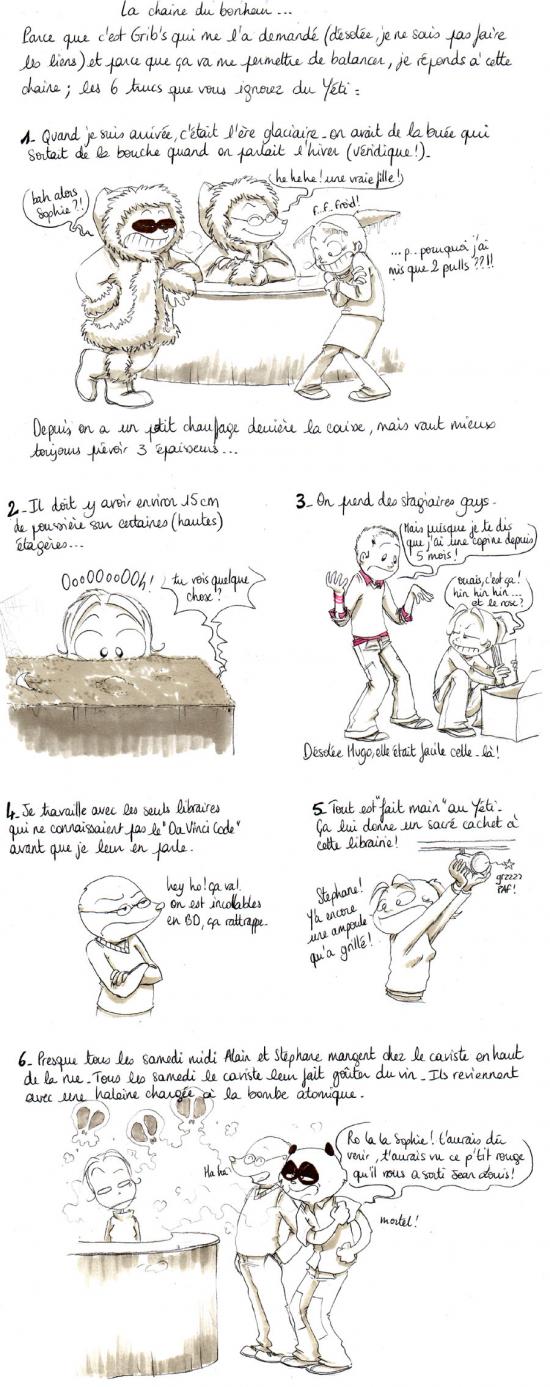 La chaine du bonheur...
Parce que c'est Grib's qui me l'a demandé (désolée, je ne sais pas faire
les liens) et parce que ça va me permettre de balancer, je réponds à cette
chaine ; les 6 trucs que vous ignorez du Yéti :
1_ Quand je suis arrivée, c'était l'ère glaciaire_ on avait de la buée qui
sortait de la bouche quand on parlait l'hiver (véridique!)_
bah alors
Sophie?!
he hehe! une vraie fille!
f..f..froid!
...p..pourquoi j'ai
mis que 2 pulls ??!!
Depuis on a un ptit chauffage derrière la caisse, mais vaut mieux
toujours prévoir 3 épaisseurs...
2_ Il doit y avoir environ 15cm
de poussière sur certaines (hautes)
étagères...
OooOOooOOh!
tu vois quelque
chose?
3_ On prend des stagiaires gays_
Mais puisque je te dis
que j'ai une copine depuis
5 mois!
ouais, c'est ça!
hin hin hin...
et le rose?
Désolée Hugo, elle était facile celle-là!
4_ Je travaille avec les seuls libraires
qui ne connaissaient pas le "Da Vinci Code"
avant que je leur en parle.
hey ho! ça va!
on est incollables
en BD, ça rattrappe_
5_ Tout est "fait main" au Yéti_
Ça lui donne un sacré cachet à
cette librairie!
Stéphane!
Y'a encore
une ampoule
qu'a grillé!
grzzzz
PAF!
6_ Presque tous les samedi midi Alain et Stéphane mangent chez le caviste en haut
de la rue_ Tous les samedi le caviste leur fait goûter du vin_ Ils reviennent
avec une haleine chargée à la bombe atomique.
Ha ha
Ro la la Sophie! t'aurais dû
venir, t'aurais vu ce p'tit rouge
qu'il nous a sorti Jean Louis!
mortel!